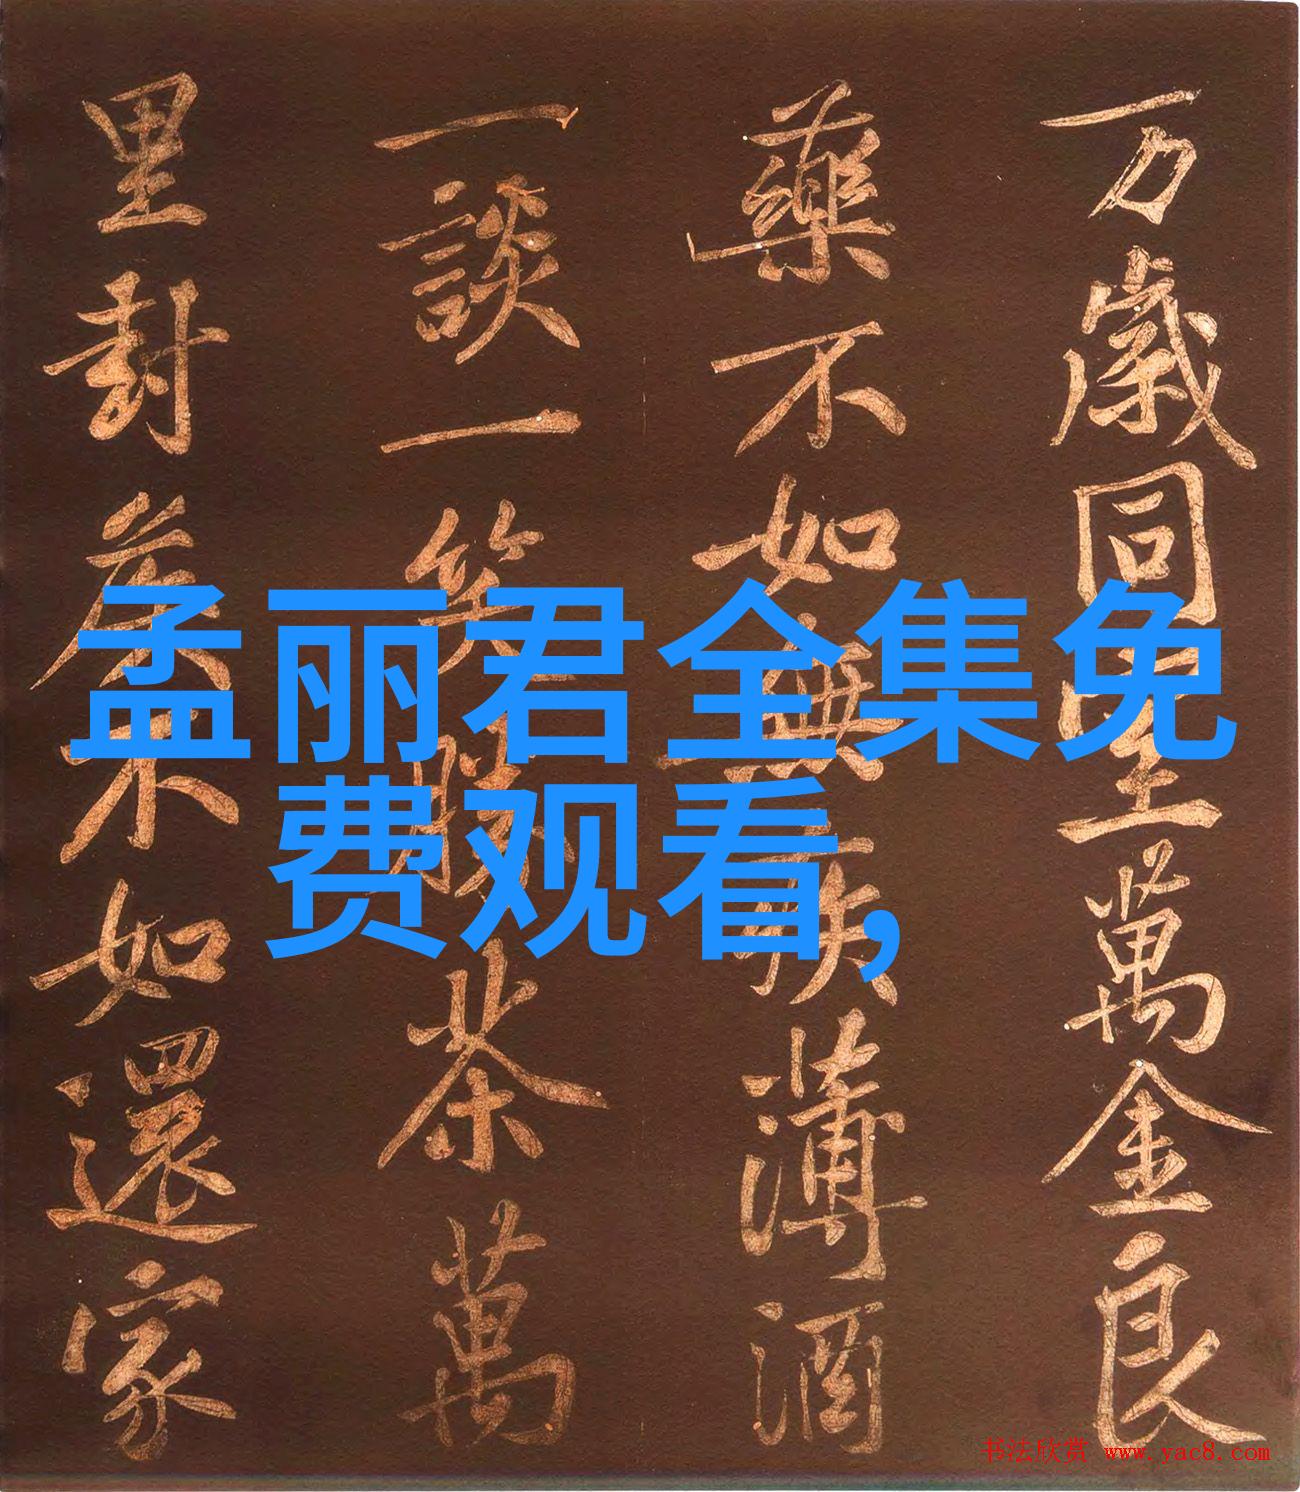 万歲同萬金良
藥不如無疾薄酒
一談一笑勝茶萬
里封侯不如還家
孟丽君全集免
费观看,
书法欣赏 www.yac8.com